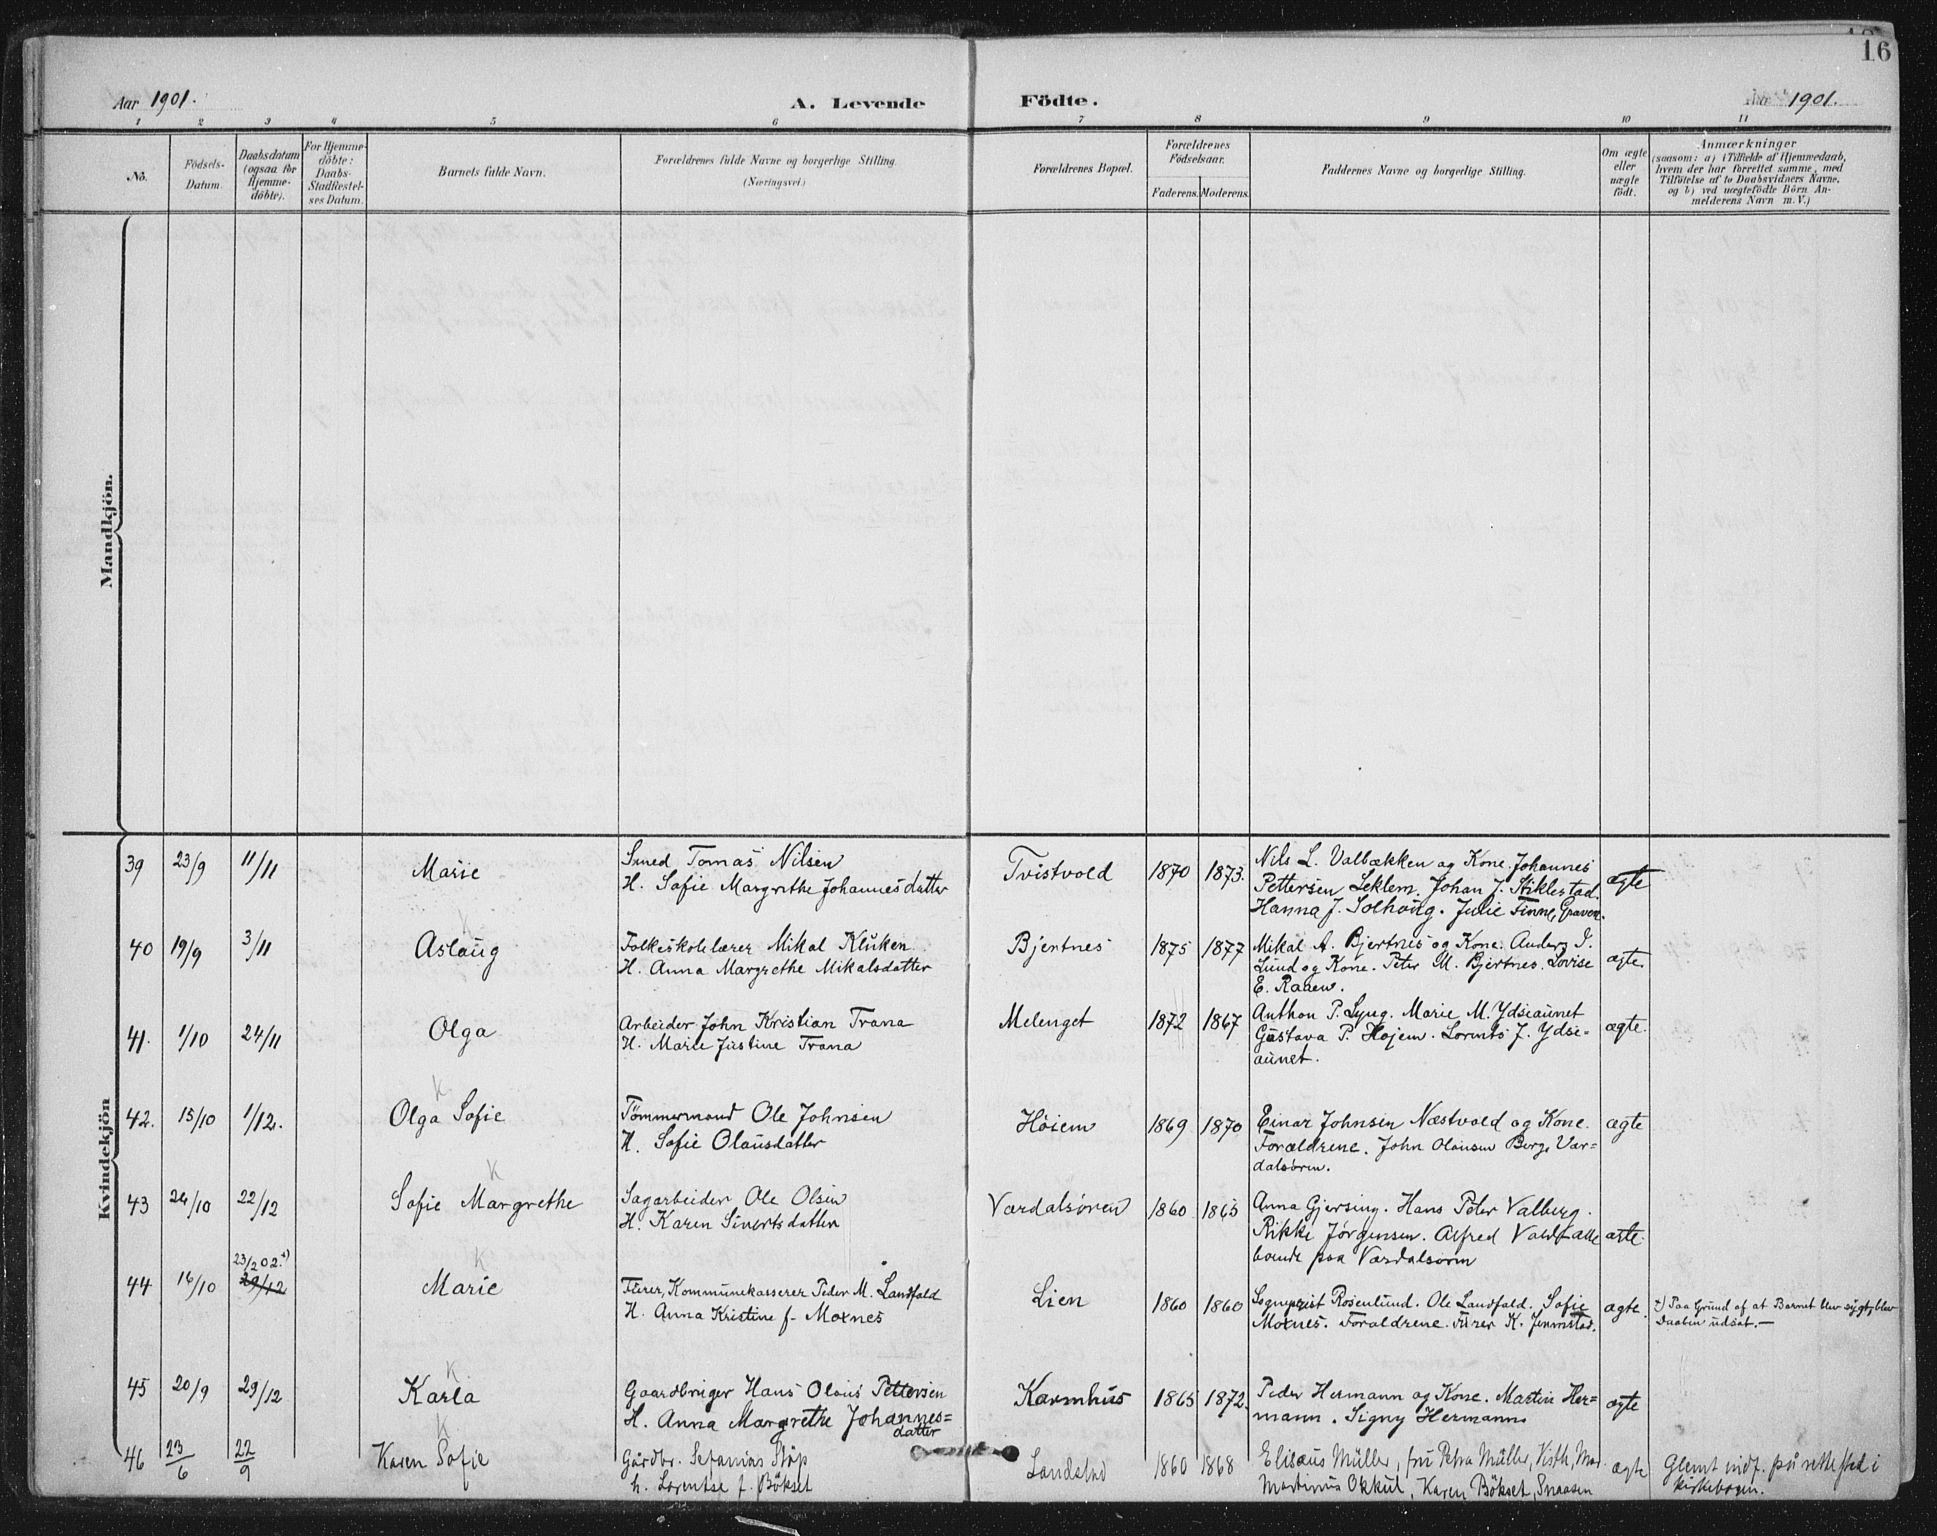 16
Aar 1901.
A. Levende Födte.
Aar 1901.
1 2 3 4 5 6 7 8 9 10 11
No.
Födsels-Datum.
Daabsdatum (ogsaa for Hjemme-döbte).
For Hjemme-döbte: Daabs-Stadfæstel-ses Datum.
Barnets fulde Navn.
Forældrenes fulde Navne og borgerlige Stilling.
(Næringsvei.)
Forældrenes Bopæl.
Forældrenes Födselsaar.
Faderens. Moderens.
Faddernes Navne og borgerlige Stilling.
Om ægte eller uægte födt.
Anmærkninger
(saasom: a) i Tilfælde af Hjemmedaab,
hvem der har forrettet samme, med
Tilföielse af to Daabsvidners Navne,
og b) ved uægtefödte Börn An-
melderens Navn m. V.)
Mandkjön.
Kvindekjön
39 23/9 11/11 Marie Smed Tomas Nilsen Tvistvold 1870 1873. Nils L. Valbækken og Kone. Johannes ægte
H. Sofie Margrethe Johannesdatter Pettersen Leklem. Johan J. Stiklestad.
Hanna J. Solhoug. Julie Finne, Graven.
K
40 19/9 3/11 Aslaug Folkeskolelærer Mikal Kluken Bjertnes 1875 1877 Mikal A. Bjertnes og Kone. Anders I. ægte.
H. Anna Margrethe Mikalsdatter Lund og Kone. Peter M. Bjertnes. Lovise
E. Raaen.
41. 1/10 24/11 Olga Arbeider John Kristian Trana Melenget 1872 1867 Anthon P. Lyng. Marie M. Ydseaunet ægte.
H. Marie Justine Trana Gustava P. Hojem. Lornts J. Ydse=
aunet.
K
42. 15/10 1/12. Olga Sofie Tømmermand Ole Johnsen Høiem 1869 1870 Einar Johnsen Næstvold og Kone. ægte
H. Sofie Olausdatter Forældrene. John Olausen Berg, Vær=
dalsøren.
K
43 24/10 22/12 Sofie Margrethe Sagarbeider Ole Olsen Værdalsøren 1860 1865 Anna Gjersing. Hans Peter Valberg.
H. Karen Sivertsdatter Rikke Jørgensen. Alfred Vold alle ægte.
boende paa Værdalsøren
K
23/2 02. +)
44 16/10 29/12 Marie Fører, Kommunekasserer Peder M. Landfald Lien 1860 1860 Sogneprest Rosenlund. Ole Landfald. Sofie ægte. +) Paa Grund af at Barnet blev sygt, blev
H. Anna Kristine f. Moxnes Moxnes. Forældrene. Fører K. Jermstad. Daaben udsat. —
K
45 20/9 29/12 Karla Gaardbruger Hans Olaus Pettersen Karmhus 1865 1872. Peder Hermann og Kone. Martin Her= ægte
H. Anna Margrethe Johannes= mann. Signy Hermann
datter
K
46 23/6 22/9 Karen Sofie Gårdbr. Sefanias Støp Landstad 1860 1868 Elisæus Müller, fru Petra Müller, Visth, Mo. ægte Glemt indf. på rette sted i
h. Lorentse f. Bökset Martinus Okkul, Karen Bökset, Snaasen kirkebogen.